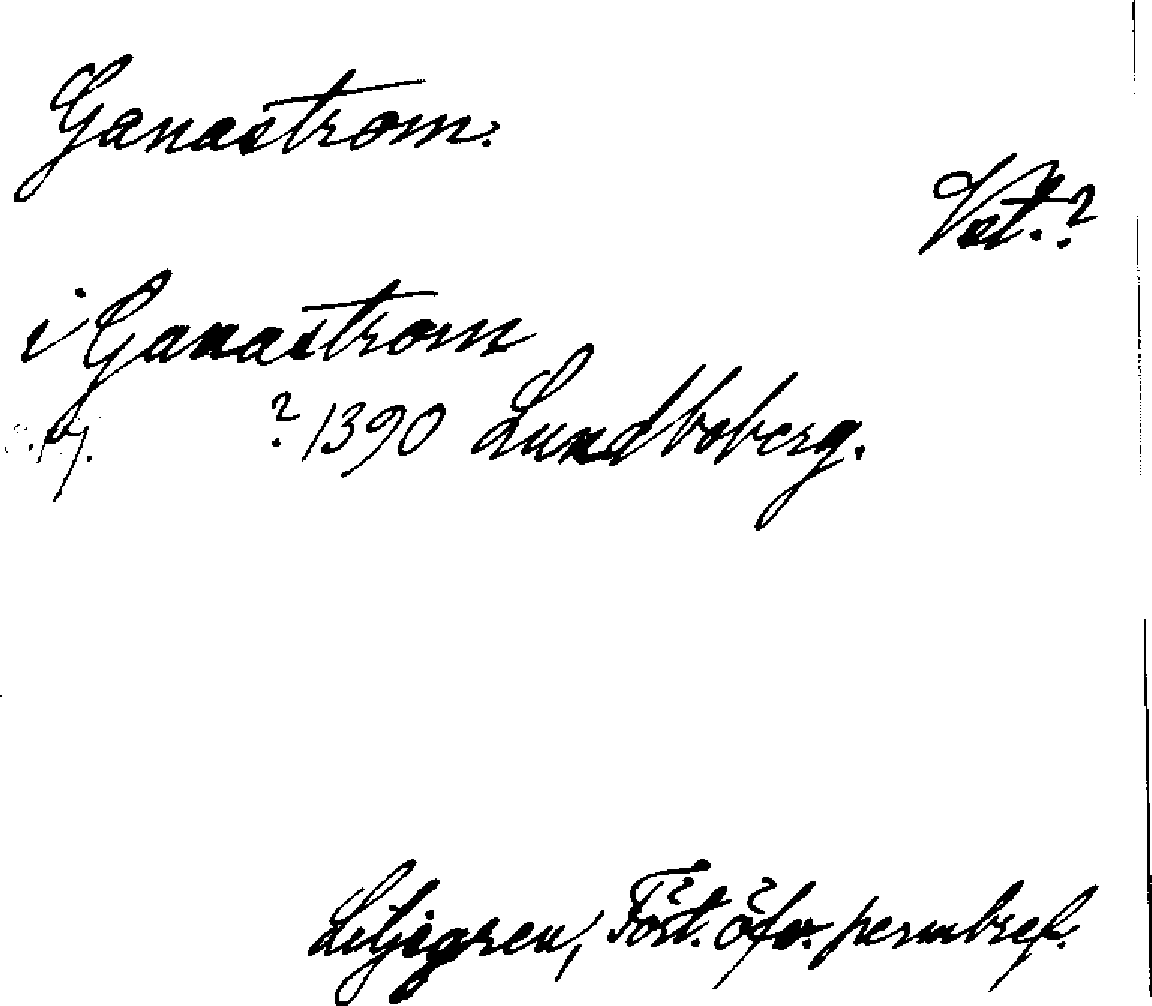 Ganastrom.
Vst.?
i Ganastrom
? 1390 Lundboberg.
Liljegren, Fört. öfv. permbref.